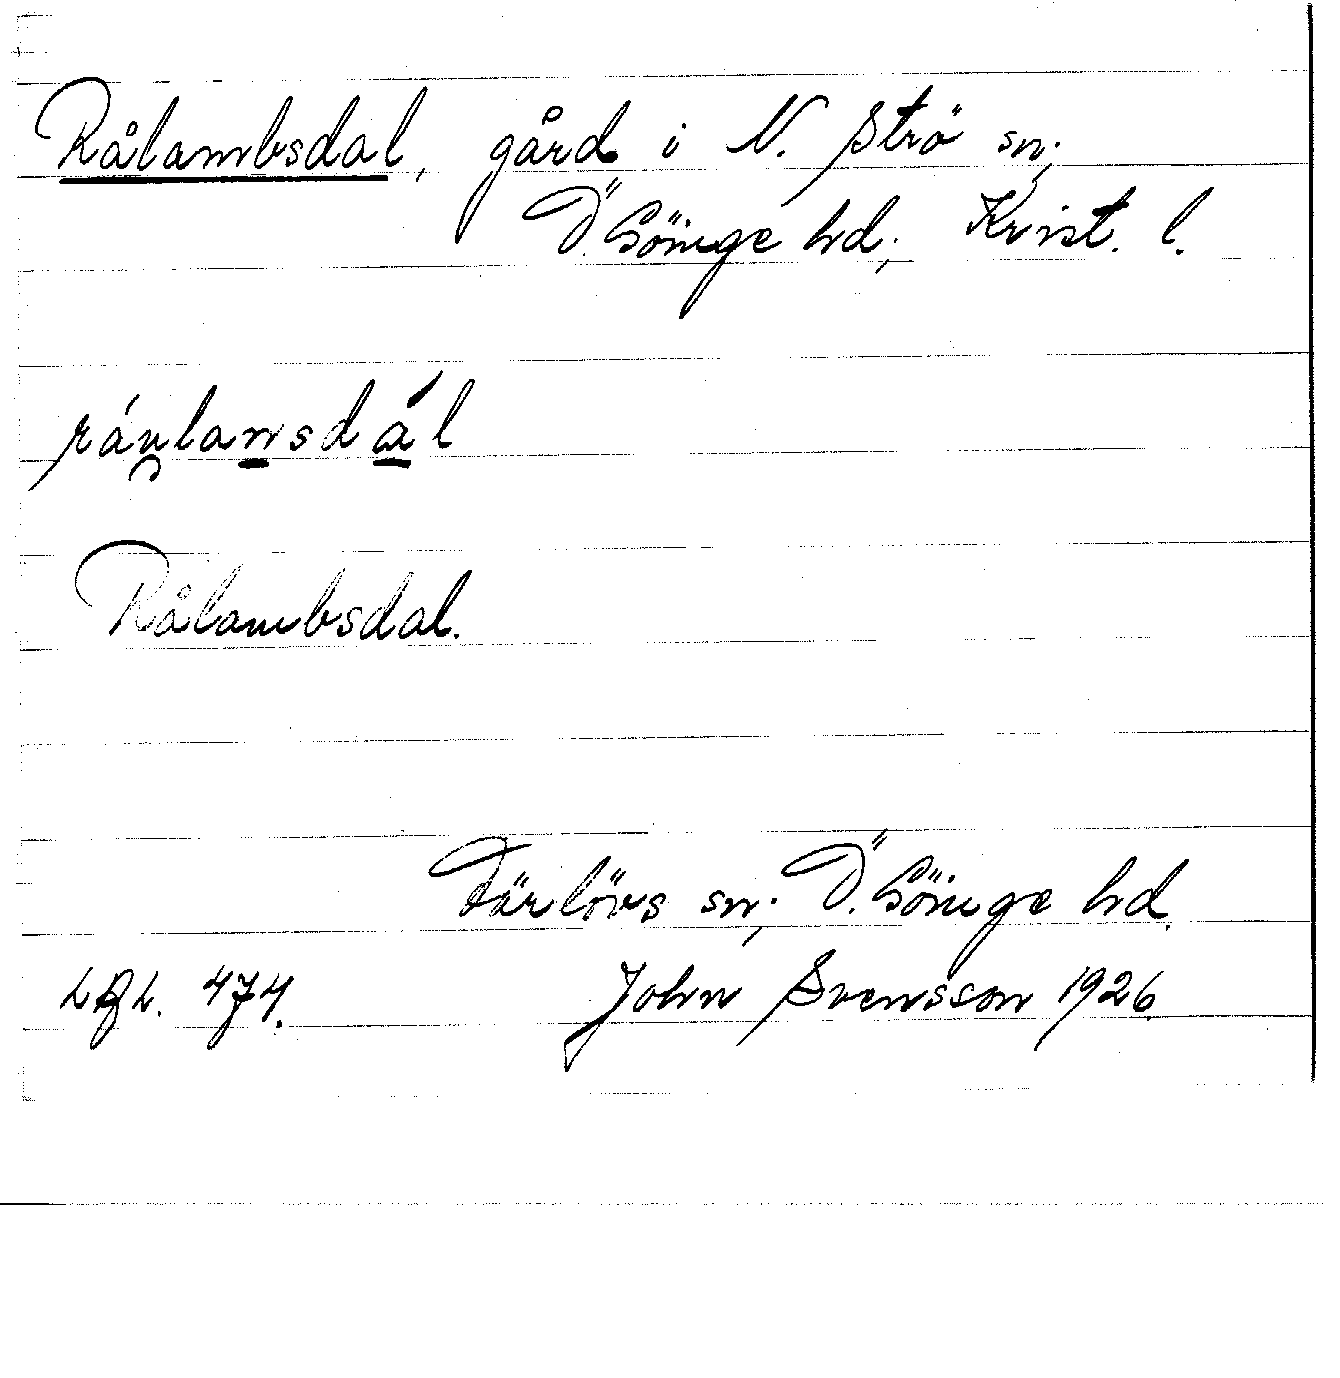 Rålambsdal, gård i N. Strö sn;
Ö. Göinge hd; Krist. l.
ráu̯lam̠sdá̠l
Rålambsdal.
Färlövs sn; Ö. Göinge hd.
474. John Svensson 1926.